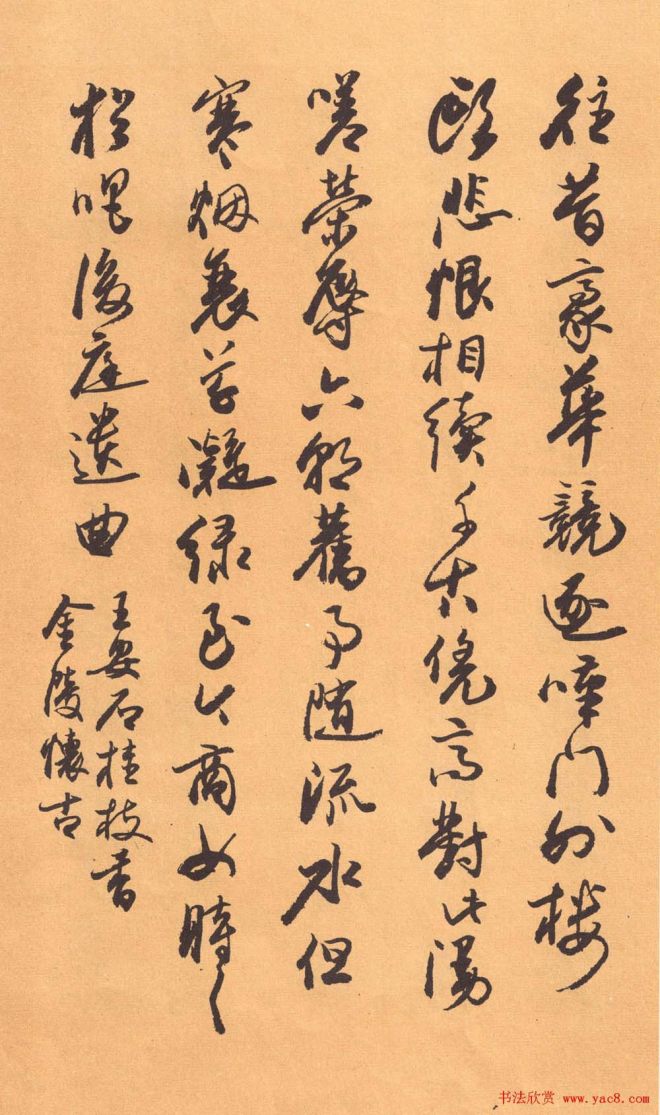 往昔豪華競逐嘆門外楼
頭悲恨相續千古凭高對此漫
嗟榮辱六朝舊事随流水但
寒烟衰草凝绿至今商女時々
猶唱後庭遺曲
王安石桂枝香
金陵懷古
书法欣赏 www.yac8.com